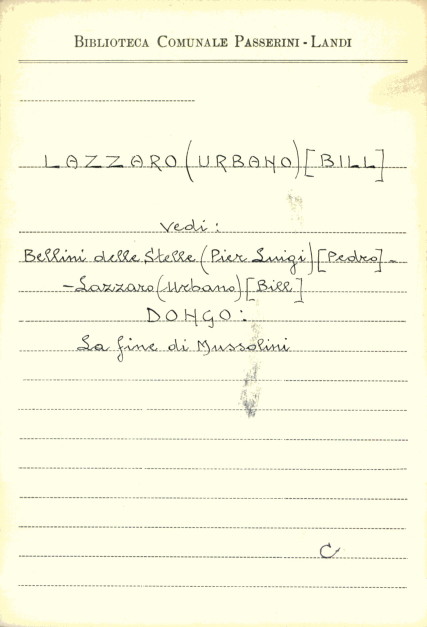 BIBLIOTECA COMUNALE PASSERINI - LANDI
LAZZARO (URBANO) [BILL]
vedi :
Bellini delle Stelle (Pier Luigi) [Pedro] -
- Lazzaro (Urbano) [Bill]
DONGO :
La fine di Mussolini
C